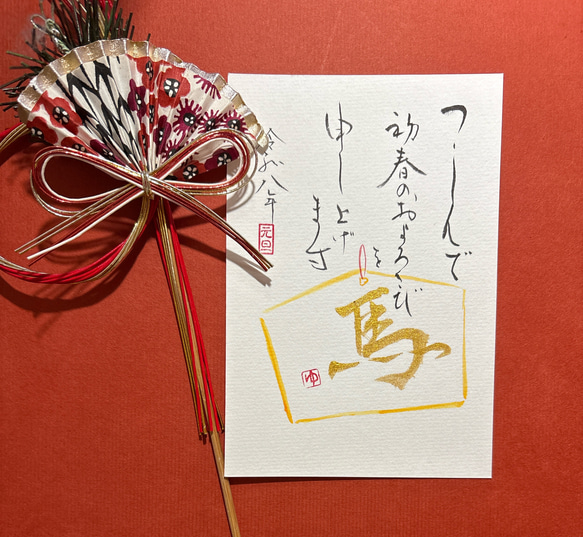 つゝしんで
初春のおよろこびを
申し上げます
令和八年
元旦
馬
ゆ